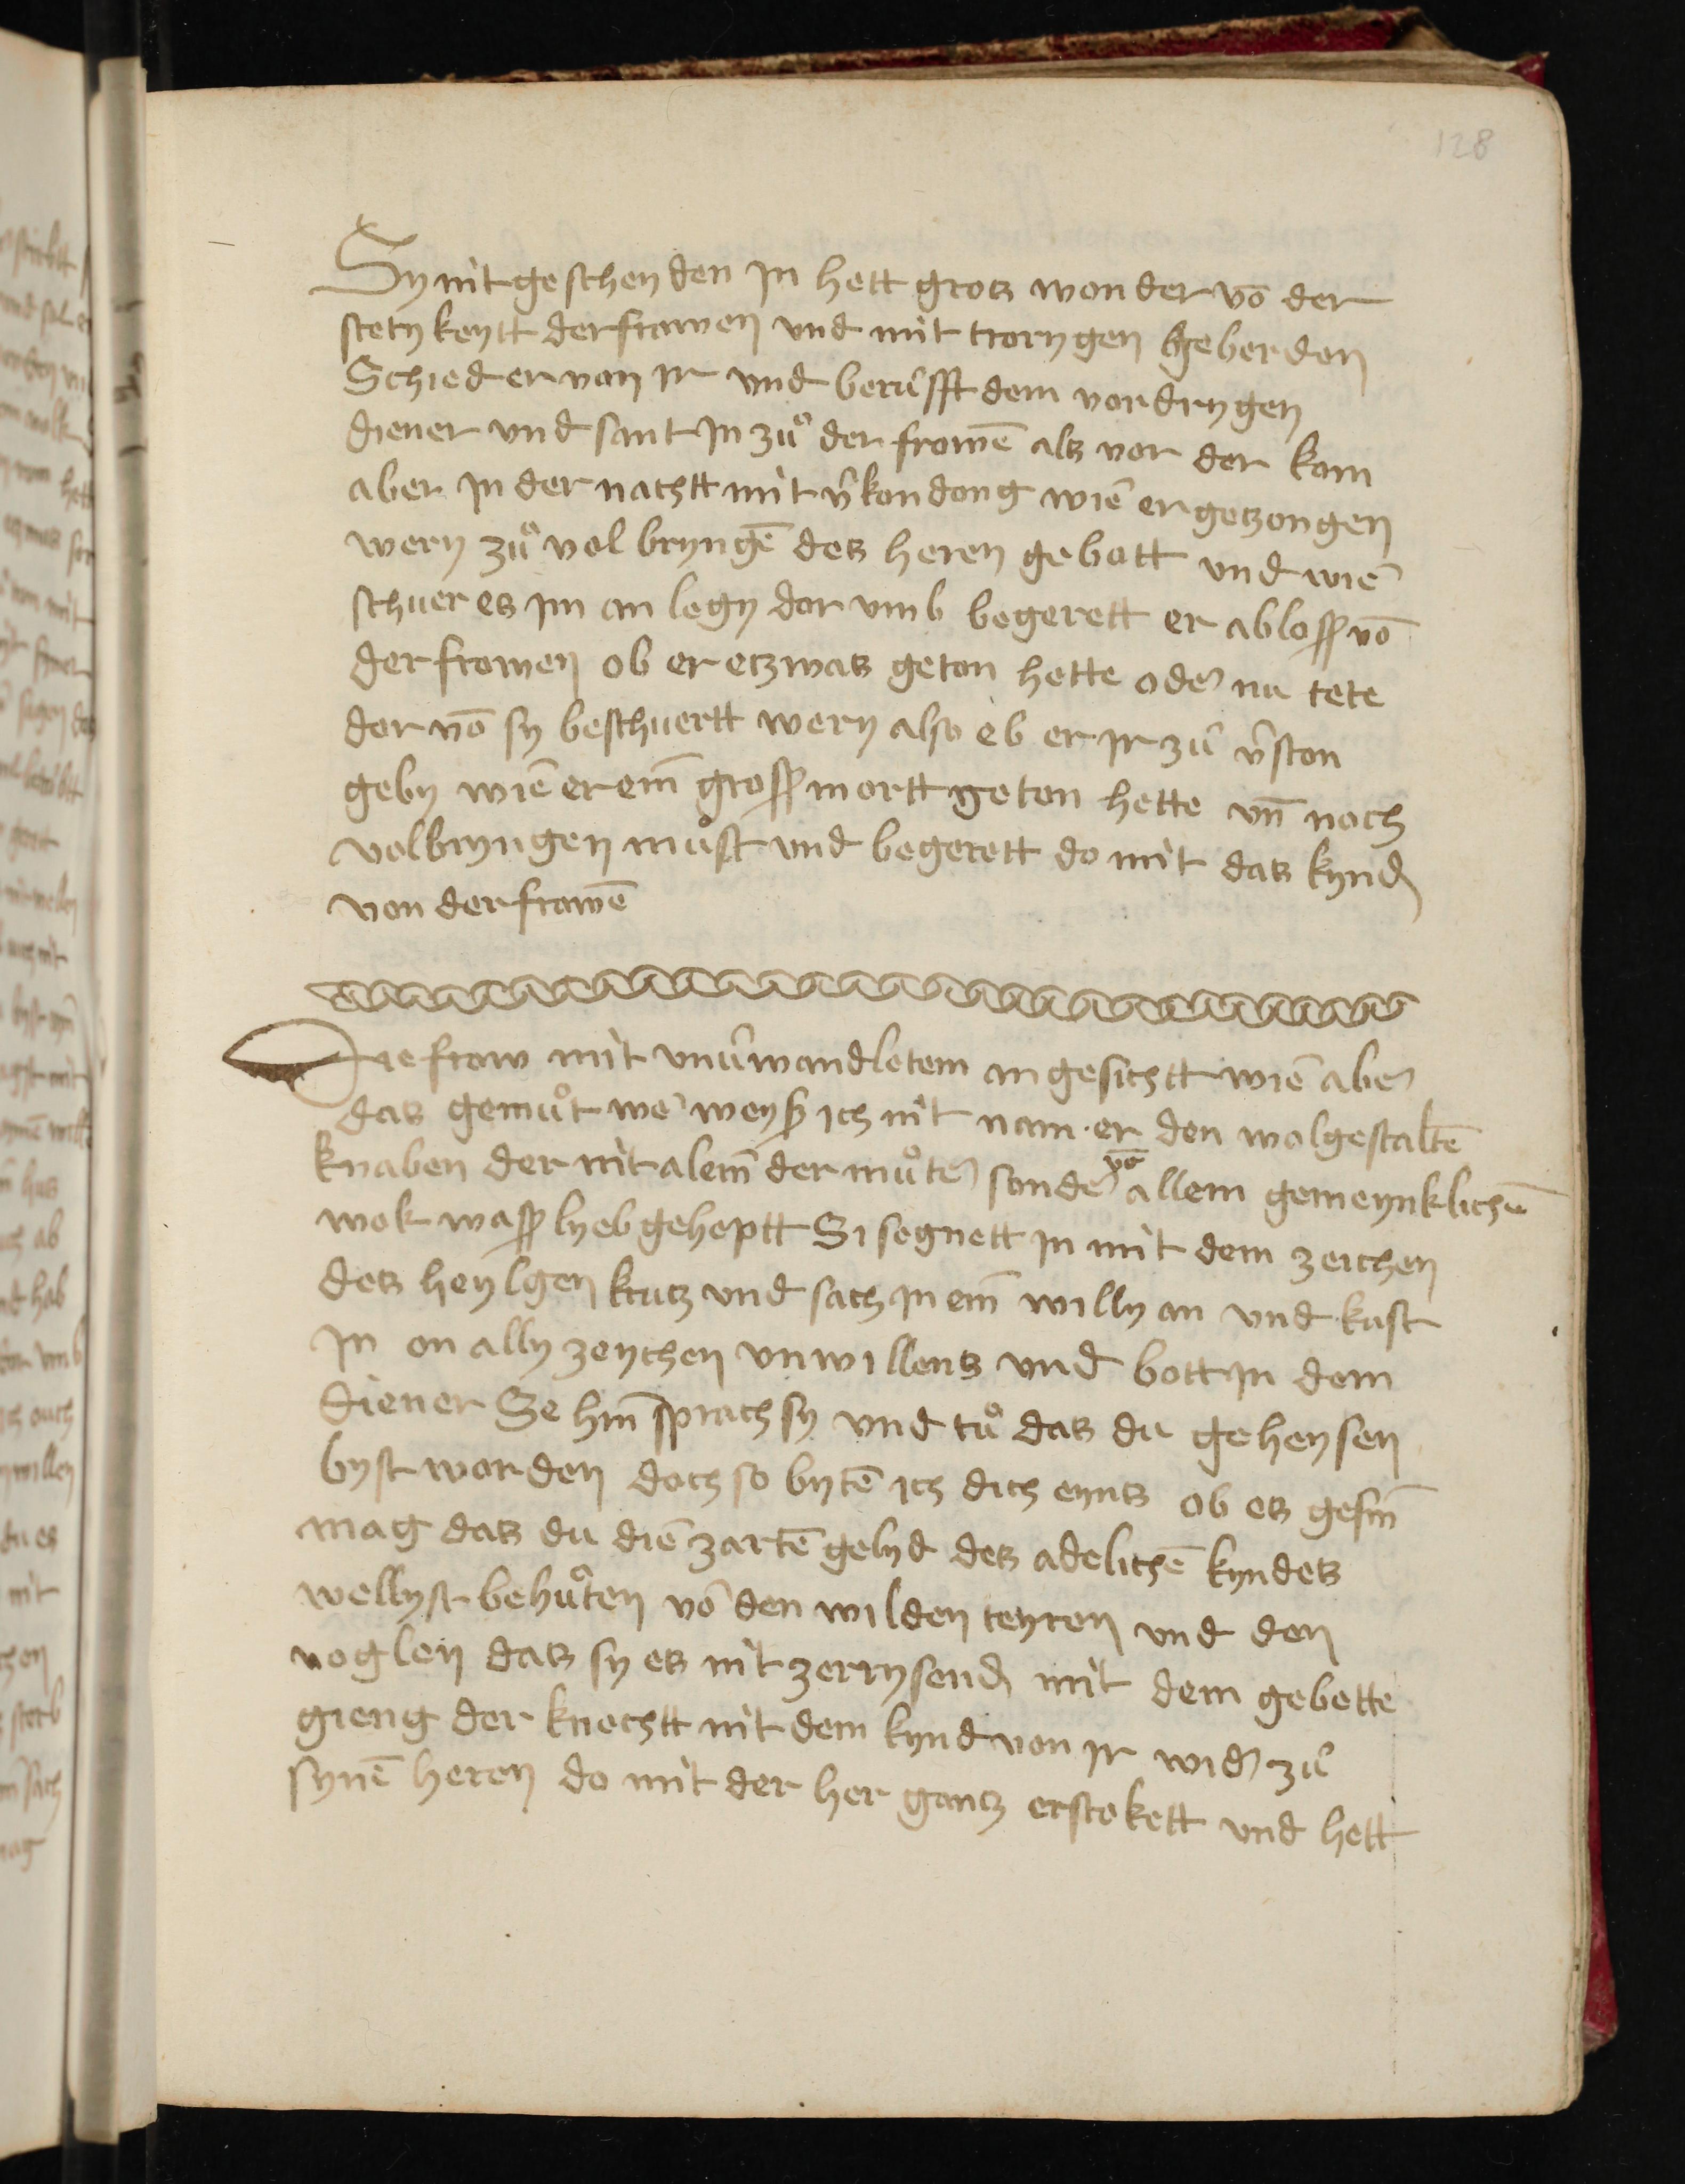 128
Sy nit geschey den In hett grosz wonder võ der
stetykeytt der frawen vnd mit trorygen geberden
Schied er von Ir vnd berůfft dem vordrygen
diener vnd sant In zů der frowẽ als vor der kom
aber In der nachtt mit v̂kondong wie er getzongen
wery zů vol bryngẽ des heren gebott vnd wie
schuer es Im an legy dar vmb begerett er ablosz võ
der frowen ob er etzwas geton hette oder nu tete
dar võ sy beschuertt wery also eb er Ir zů v̂ston
geby wie er ein̄ grosz mortt geton hette vn̄ noch
volbryngen můst vnd begerett do mit das kynd
von der frawẽ
Die fraw mit vnûwandletem angesichtt wie aber
das gemůt wer weysz ich nit nam er den wolgestaltẽ
knaben der nit alein̄ der můter sonder võ allem gemeynklichen
wok wasz lyeb geheptt Si segnett In mit dem zeichen
des heylgen krutz vnd sach In ein̄ willy an vnd kust
In on ally zeychen vnwillens vnd bott In dem
diener Se hin̄ sprach sy vnd tů das du geheysen
byst worden doch so bytẽ ich dich eyns ob es gesin̄
mag das du die zartẽ gelyd des adelichẽ kyndes
wellyst behůten võ den wilden teyren vnd den
voglen das sy es nit zerrysend mit dem gebette
gieng der knechtt mit dem kynd von Ir wider zů
synẽ heren do mit der her gantz erstokett vnd hett